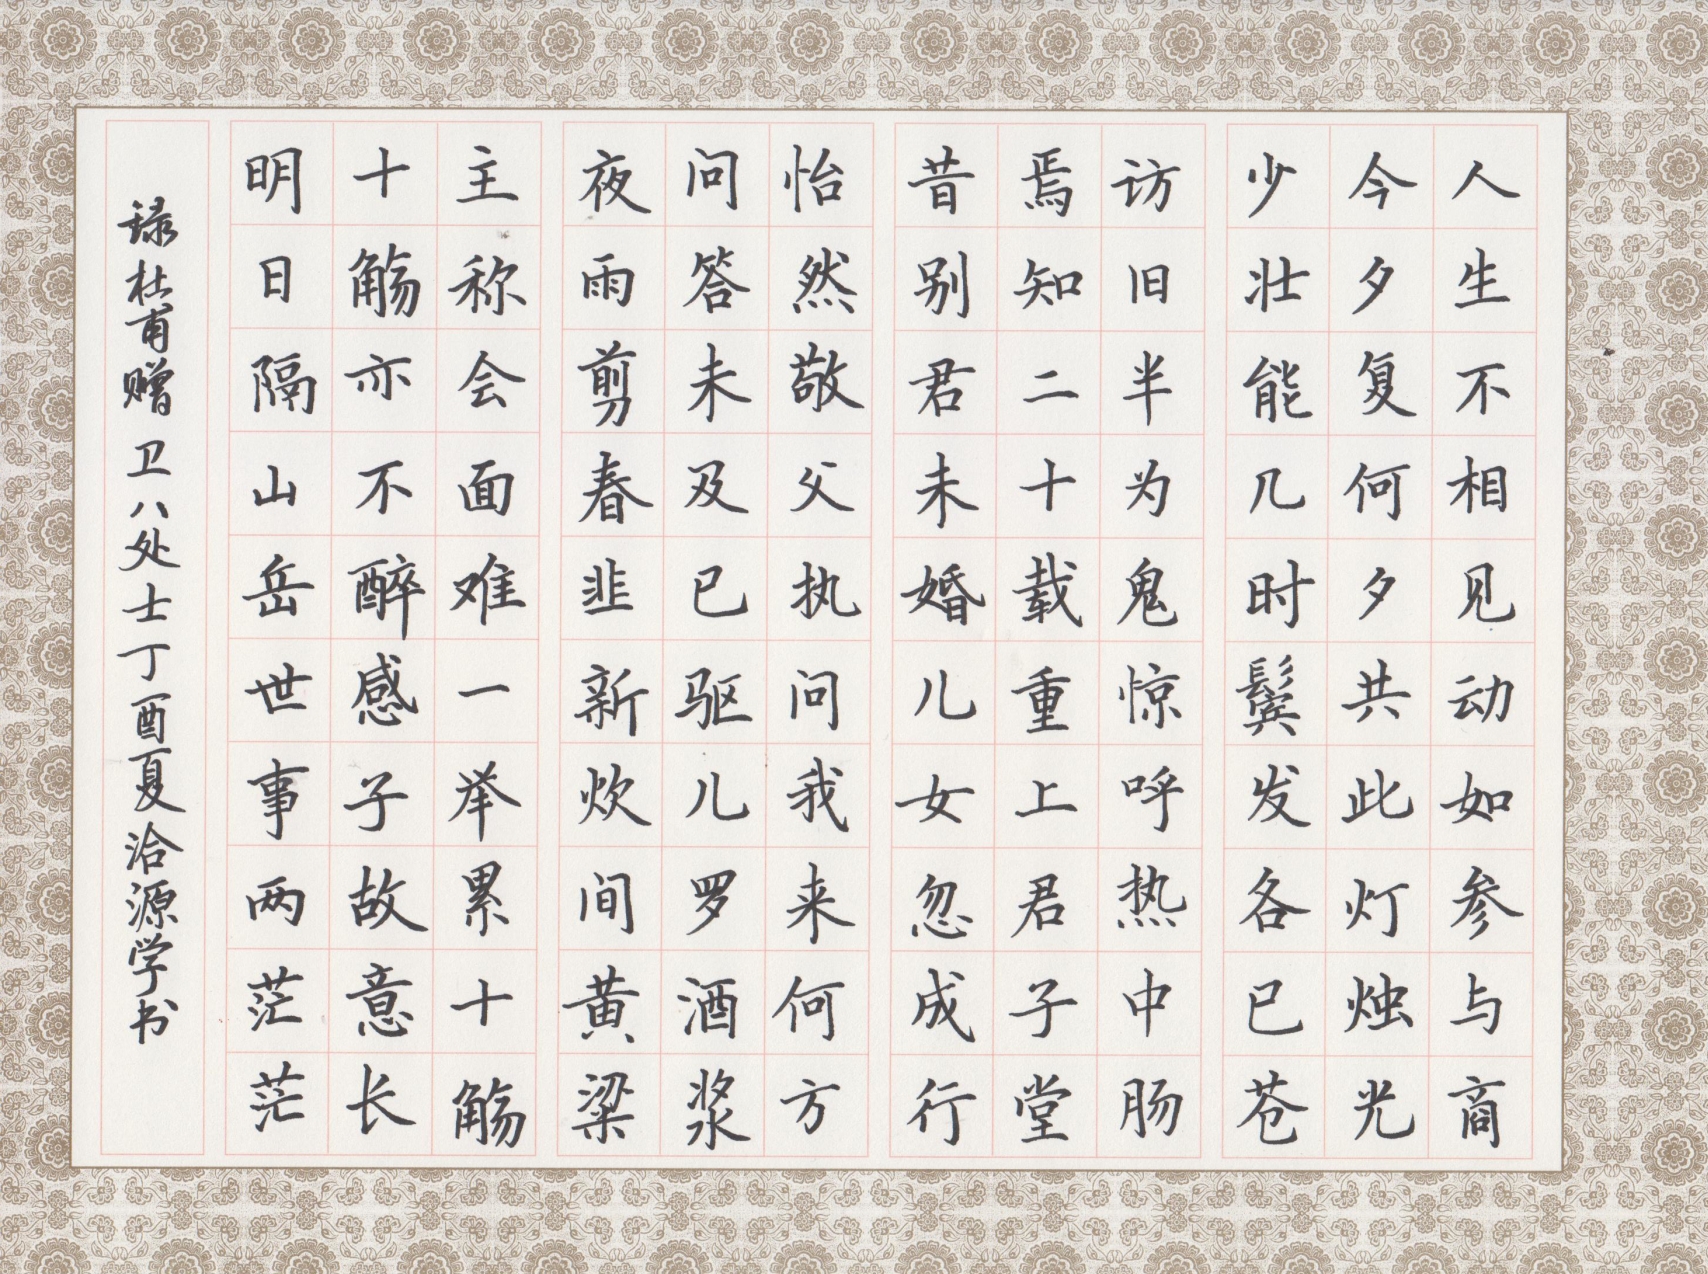 人生不相见动如参与商
今夕复何夕共此灯烛光
少壮能几时鬓发各已苍
访旧半为鬼惊呼热中肠
焉知二十载重上君子堂
昔别君未婚儿女忽成行
怡然敬父执问我来何方
问答未及已驱儿罗酒浆
夜雨剪春韭新炊间黄粱
主称会面难一举累十觞
十觞亦不醉感子故意长
明日隔山岳世事两茫茫
录杜甫赠卫八处士丁酉夏洽源学书